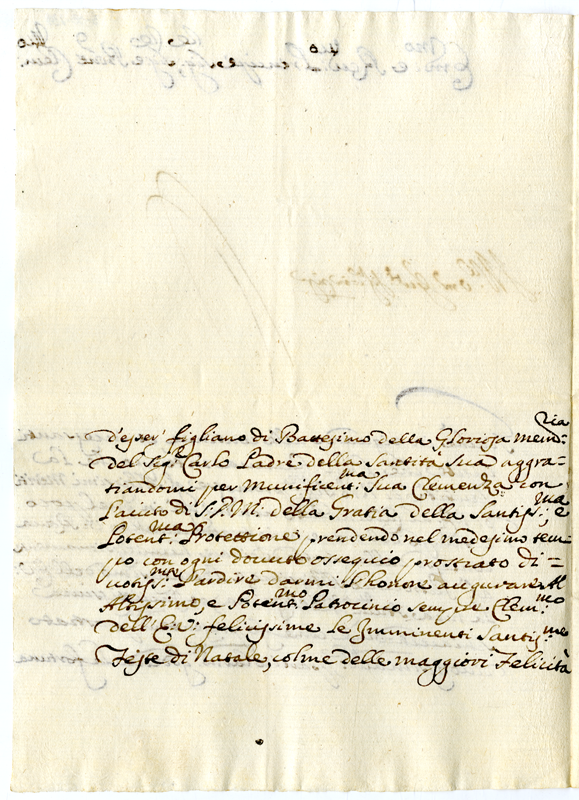 d'esser figliano di Battesimo della Gloriosa mem:ria
del Sig.r Carlo Padre della Santità Sua aggra-
tiandomi per munificent:ma Sua Clemenza con
l'aiuto di S.P.M: della Gratia della Santiss:ma, e
Potent:ma Protettione, rendendo nel medesimo tem
po con ogni douuto ossequio prostrato di=
uotiss:me l'ardire darmi l'honore augurare Al
Altissimo, e Potent:mo Patrocinio sempre Clem:mo
dell'Em: felicissime le Imminenti Santiss:me
Feste di Natale, colme delle maggiori Felicità